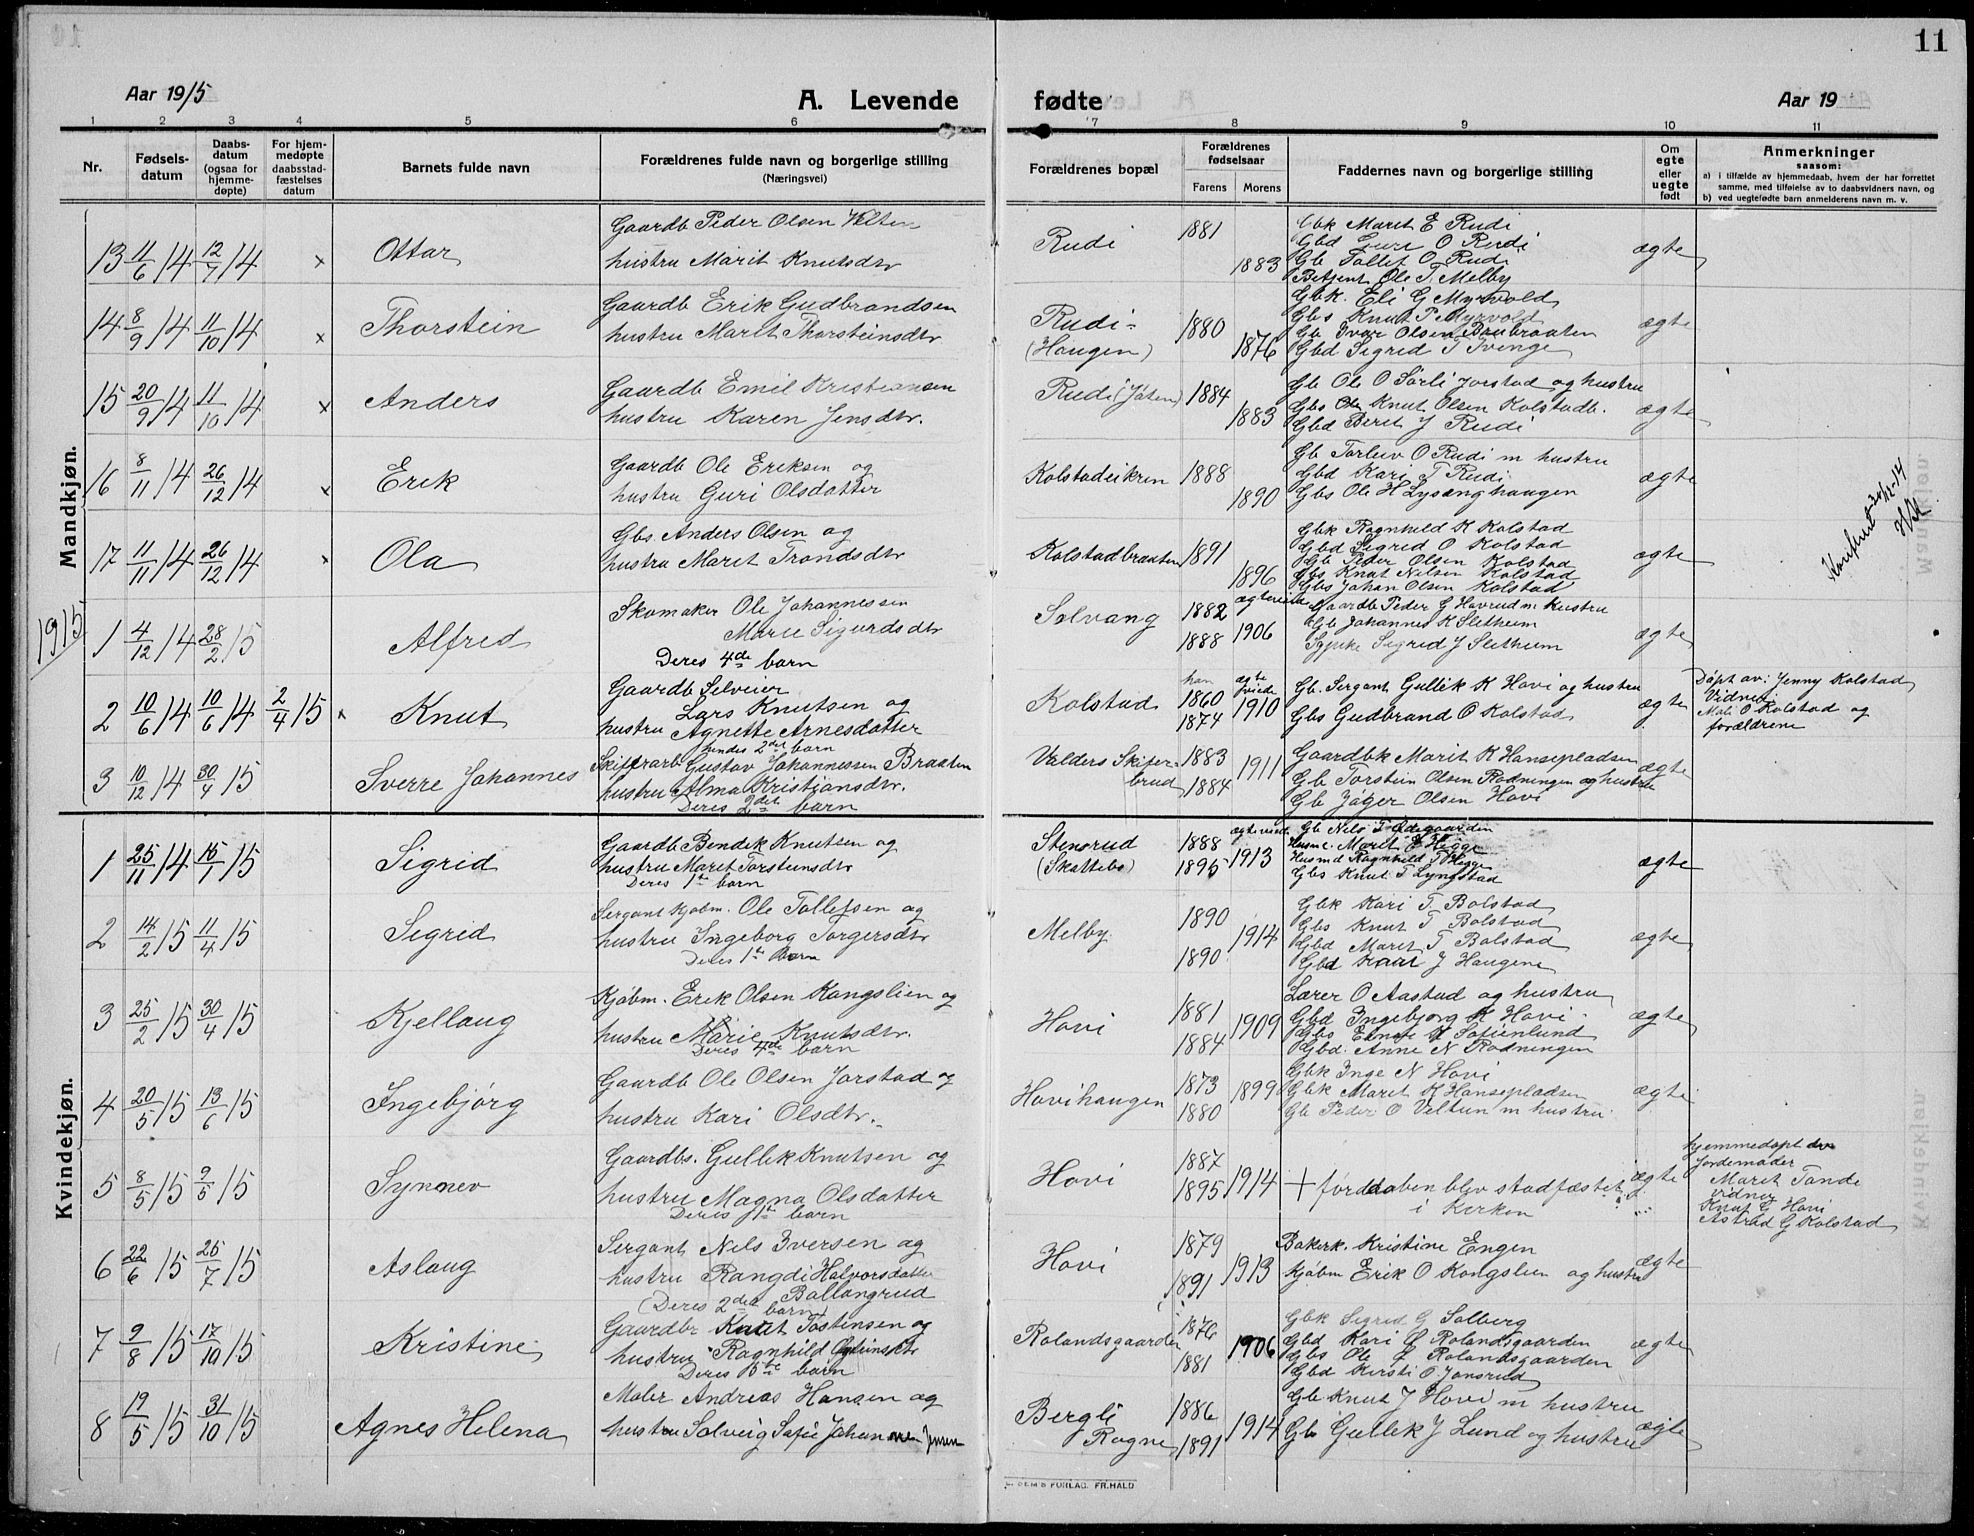 11
Aar 1915
A. Levende
fødte
Aar 19
1 2 3 4 5 6 7 8 9 10 11
Nr.
Fødsels-
datum
Daabs-
datum
(ogsaa for
hjemme-
døpte)
For hjem-
medøpte
daabsstad-
fæstelses
datum
Barnets fulde navn
Forældrenes fulde navn og borgerlige stilling
(Næringsvei)
Forældrenes bopæl
Forældrenes
fødselsaar
Farens Morens
Faddernes navn og borgerlige stilling
Om
egte
eller
uegte
født
Anmerkninger
saasom:
a) i tilfælde av hjemmedaab, hvem der har forrettet
samme, med tilføielse av to daabsvidners navn, og
b) ved uegtefødte barn anmelderens navn m. v.
Mandkjøn.
13 11/6 14 12/7 14 x Ottar
Gaardb Peder Olsen
hustru Marit Knutsdtr
Rudi 1881 1883
Gbk Marit E Rudi
Gbd Guri O Rudi
Gb Tollef O Rudi
Betjent Ole T Melby
ægte
14 8/9 14 11/10 14 x Thorstein
Gaardb Erik Gudbrandsen
hustru Marit Thorsteinsdtr
Rudi-
(Haugen)
1880 1876
Gbk. Eli G Myrvold
Gbs Knut P Myrvold
Gb Ivar Olsen Baubraaten
Gbd Sigrid T Tvenge
ægte
15 20/9 14 11/10 14 x Anders
Gaardb Emil Kristiansen
hustru Karen Jensdtr.
Rudi (Jøten) 1884 1883
Gb Ole O Sørli Jorstad og hustru
Gbs Knut Olsen Kolstadb.
Gbd Berit J Rudi
ægte
16 8/11 14 26/12 14 x Erik
Gaardb Ole Eriksen og
hustru Guri Olsdatter
Kolstadeikren 1888 1890
Gb Torleiv O Rudi m hustru
Gbd Kari T Rudi
Gbs Ole H Lysenghaugen
ægte
17 11/11 14 26/12 14 x Ola
Gbs Anders Olsen og
hustru Marit Trondsdtr
Kolstadbraaten 1891 1896
Gbk Ragnhild K Kolstad
Gbd Sigrid O Kolstad
Gb Peder Olsen Kolstad
Gbs Knut Nelsen Kolstad
Gbs Johan Olsen Kolstad
ægte
30/12-14
1915
1 4/12 14 28/2 15 Alfred
Skomaker Ole Johannessen
Marie Sigurdsdtr
Deres 4de barn
Solvang 1882 1888 1906
Gaardb Peder G Hovrud m hustru
Gb Johannes K Sletheim
Sypike Sigrid J Sletheim
ægte
2 10/6 14 10/6 14 2/4 15 x Knut
Gaardb Selveier
Lars Knutsen og
hustru Agnette Arnesdatter
hendes 2det barn
Kolstad
han 1860 1874
ægte viede 1910
Gb. Sergant Gullik K Hovi og hustru
Gbs Gudbrand O Kolstad
ægte
Døpt av: Jenny Kolstad
Vidner
Mali O Kolstad og
forældrene
3 10/12 14 30/4 15 Sverre Johannes
Skifrarb Gustav Johannessen Braaten
hustru Alma Kristiansdtr.
Deres 2det barn
Valders Skifer-
brud
1883 1884 1911
Gaardbk Marit K Hansepladsen
Gb Torstein Olsen Rødningen og hustru
Gb Jøger Olsen Hovi
ægte
Kvindekjøn.
1 25/11 14 15/1 15 Sigrid
Gaardb Bendik Knutsen og
hustru Marit Torsteinsdtr
Deres 1te barn
Stensrud
(Skattebo)
1888 1895
ægteviede 1913
Gb Nels T Ødegaarden
Husm. Marit E Hegge
Husmd Ragnhild T Hegge
Gbs Knut T Lyngstad
ægte
2 14/2 15 11/4 15 Sigrid
Sergant Kjøbm. Ole Tollefsen og
hustru Ingeborg Torgersdtr
Deres 1te Barn
Melby 1890 1890 1914
Gbk Kari T. Bolstad
Gbs Knut T Bolstad
Gbd Marit T Bolstad
Gbd Kari J Haugene
ægte
3 25/2 15 30/4 15 Kjellaug
Kjøbm. Erik Olsen Kongslien og
hustru Marie Knutsdtr.
Deres 4de barn
Hovi 1881 1884 1909
Lærer O Aastad og hustru
Gbd Ingebjorg K Hovi
Gbs Einar Sofienlund
Gbd. Anne N Rødningen
ægte
4 20/5 15 13/6 15 Ingebjørg
Gaardb Ole Olsen Jorstad og
hustru Kari Olsdtr.
Hovihaugen 1873 1880 1899
Gbk Inge N Hovi
Gbk Marit K Hansepladsen
Gb Peder O Veltun m hustru
ægte
5 8/5 15 9/5 15 Synnev
Gaardbs. Gullik Knutsen og
hustru Magna Olsdatter
Deres 1te barn
Hovi 1887 1895 1914
+ før daaben blev stadfæstet
i Kirken
ægte
hjemmedøpt av
Jordemoder
Marit Tande
vidner
Knut G Hovi
Astrid G Kolstad
6 22/6 15 25/7 15 Aslaug
Sergant Nels Iversen og
hustru Rangdi Halvorsdatter
Ballangrud
(Deres 2det barn)
Hovi 1879 1891 1913
Bakerk. Kristine Engen
Kjøbm Erik O Kongslien og hustru
ægte
7 9/8 15 17/10 15 Kristine
Gaardbr Knut Tostensen og
hustru Ragnhild
Deres 6te barn
Rolandsgaarden 1876 1881 1906
Gbk Sigrid G Solberg
Gbd Kari Ø Rolandsgaarden
Gbs Ole Ø Rolandsgaarden
Gbd Kirsti O Jonsrud
ægte
8 19/5 15 31/10 15 Agnes Helena
Maler Andreas Hansen og
hustru Solveig Sofie Johannesen Jensen
Bergli
Rogne
1886 1891 1914
Gb Knut J Hovi m hustru
Gb Gullik J Lund og hustru
ægte
FORLAG. FR.HALD